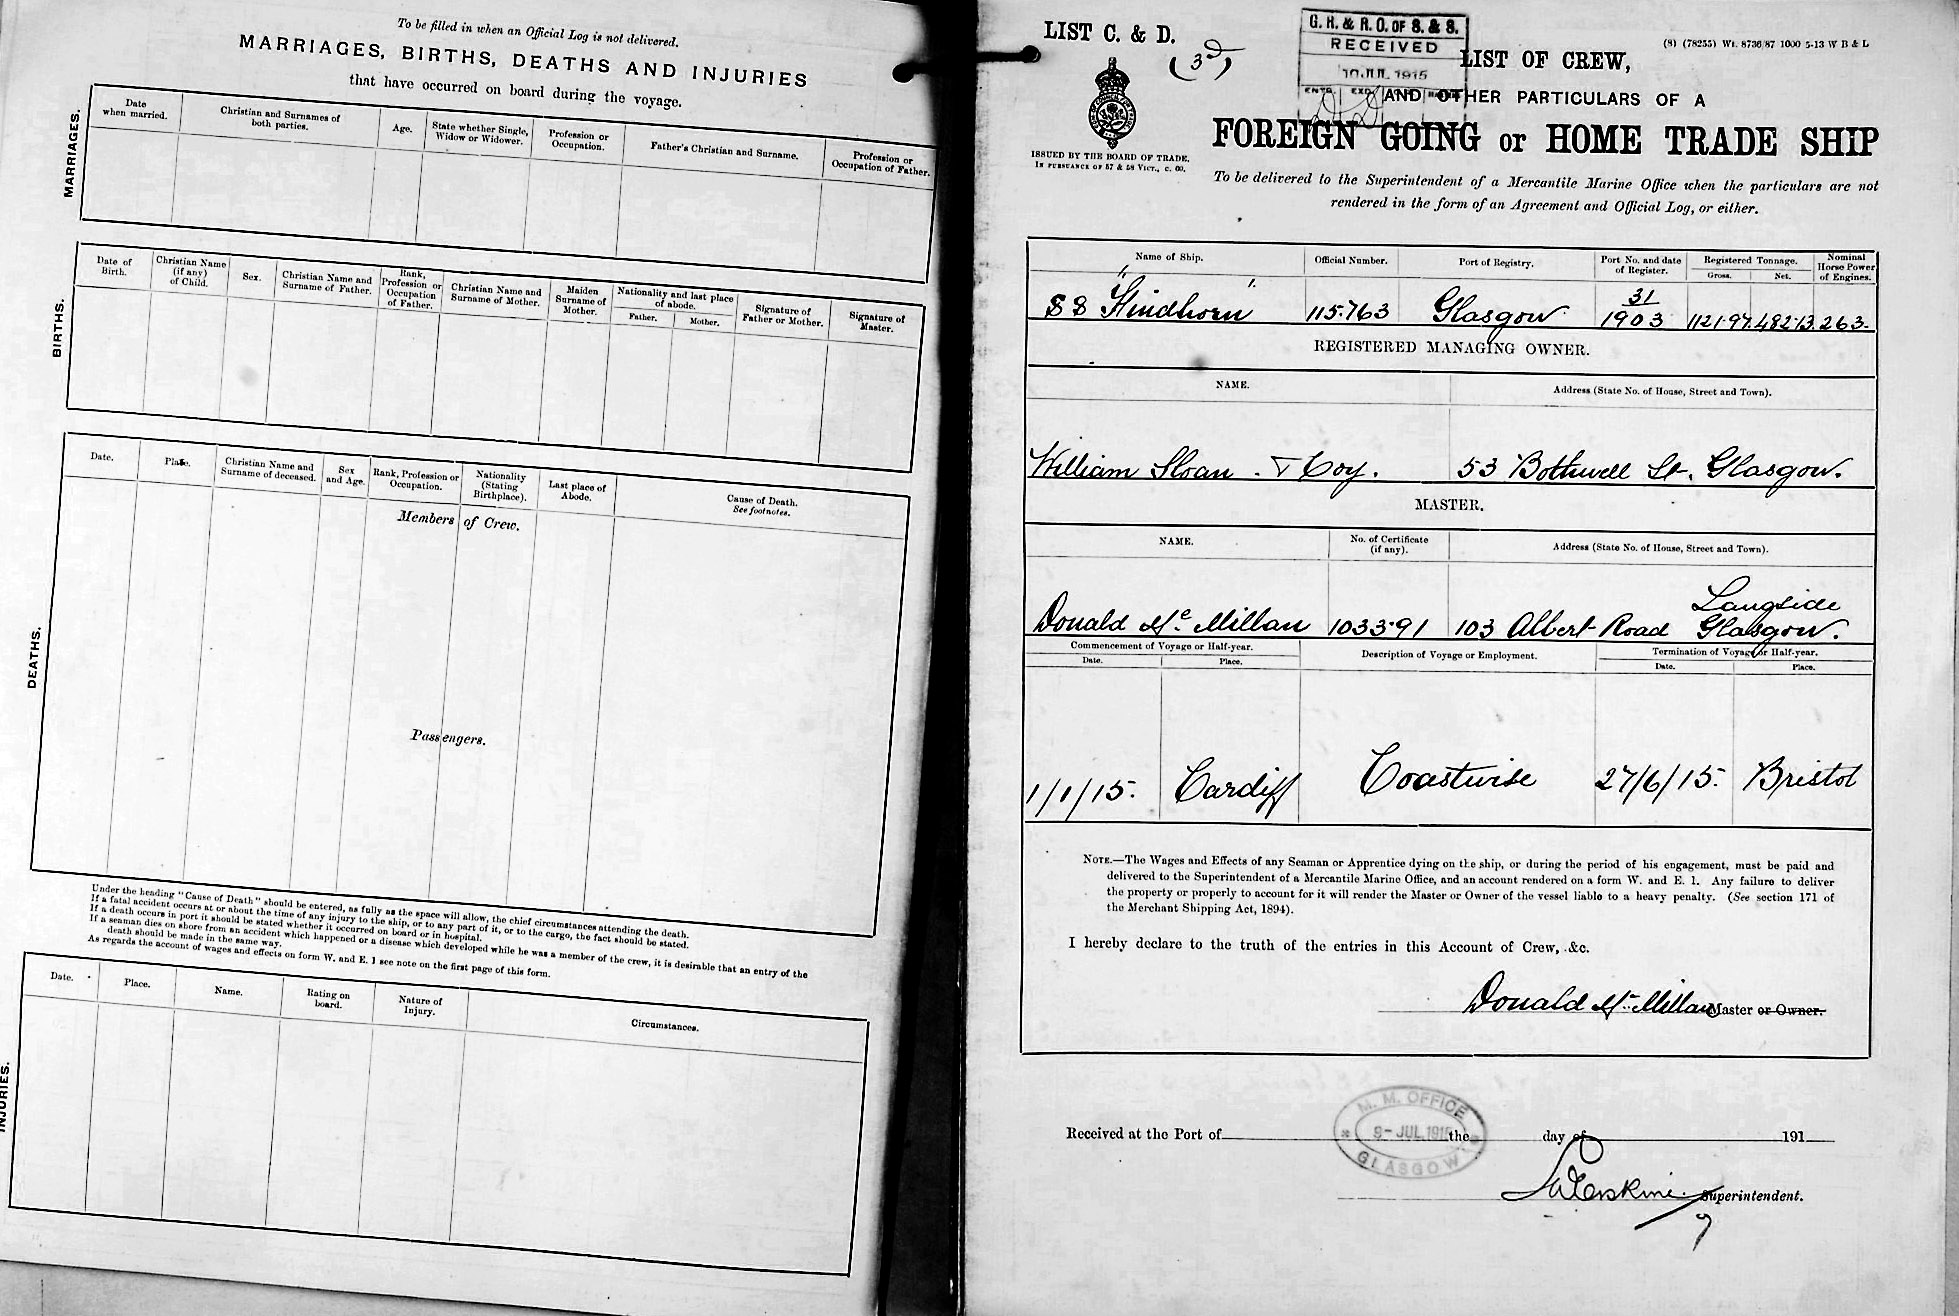 To be filled in when an Official Log is not delivered.
MARRIAGES, BIRTHS, DEATHS AND INJURIES
that have occurred on board during the voyage.
MARRIAGES.
Date when married.
Christian and Surnames of both parties.
Age.
State whether Single, Widow or Widower.
Profession or Occupation.
Father's Christian and Surname.
Profession or Occupation of Father.
BIRTHS.
Date of Birth.
Christian Name (if any) of Child.
Sex.
Christian Name and Surname of Father.
Rank, Profession or Occupation of Father.
Christian Name and Surname of Mother.
Maiden Surname of Mother.
Nationality and last place of abode.
Father.
Mother.
Signature of Father or Mother.
Signature of Master.
DEATHS.
Date.
Place.
Christian Name and Surname of deceased.
Sex and Age.
Rank, Profession or Occupation.
Nationality (Stating Birthplace).
Last place of Abode.
Cause of Death.
See footnotes.
Members of Crew.
Passengers.
Under the heading "Cause of Death" should be entered, as fully as the space will allow, the chief circumstances attending the death.
If a fatal accident occurs at or about the time of any injury to the ship, or to any part of it, or to the cargo, the fact should be stated.
If a death occurs in port it should be stated whether it occurred on board or in hospital.
If a seaman dies on shore from an accident which happened or a disease which developed while he was a member of the crew, it is desirable that an entry of the
death should be made in the same way.
As regards the account of wages and effects on form W. and E. 1 see note on the first page of this form.
INJURIES.
Date.
Place.
Name.
Rating on board.
Nature of Injury.
Circumstances.
LIST C. & D.
(3d)
G. R. & R. O. OF S. & S.
RECEIVED
10 JUL 1915
(8) (78255) Wt. 8736/87 1000 5-13 W B & L
LIST OF CREW,
AND OTHER PARTICULARS OF A
FOREIGN GOING or HOME TRADE SHIP
ISSUED BY THE BOARD OF TRADE.
IN PURSUANCE OF 57 & 58 VICT., c. 60.
To be delivered to the Superintendent of a Mercantile Marine Office when the particulars are not
rendered in the form of an Agreement and Official Log, or either.
Name of Ship.
Official Number.
Port of Registry.
Port No. and date of Register.
Registered Tonnage.
Gross.
Net.
Nominal Horse Power of Engines.
SS "Findhorn" 115.763 Glasgow 31/1903 1121.97 482.13 263.
REGISTERED MANAGING OWNER.
NAME.
Address (State No. of House, Street and Town).
William Sloan & Coy. 53 Bothwell St. Glasgow.
MASTER.
NAME.
No. of Certificate (if any).
Address (State No. of House, Street and Town).
Donald Mc Millan 103391 103 Albert Road Langside Glasgow.
Commencement of Voyage or Half-year.
Date.
Place.
Description of Voyage or Employment.
Termination of Voyage or Half-year.
Date.
Place.
1/1/15. Cardiff Coastwise 27/6/15. Bristol
NOTE.—The Wages and Effects of any Seaman or Apprentice dying on the ship, or during the period of his engagement, must be paid and
delivered to the Superintendent of a Mercantile Marine Office, and an account rendered on a form W. and E. 1. Any failure to deliver
the property or properly to account for it will render the Master or Owner of the vessel liable to a heavy penalty. (See section 171 of
the Merchant Shipping Act, 1894).
I hereby declare to the truth of the entries in this Account of Crew, &c.
Donald Mc Millan Master or Owner.
M. M. OFFICE
9 - JUL 1915
GLASGOW
Received at the Port of the day of 191
Erskine Superintendent.